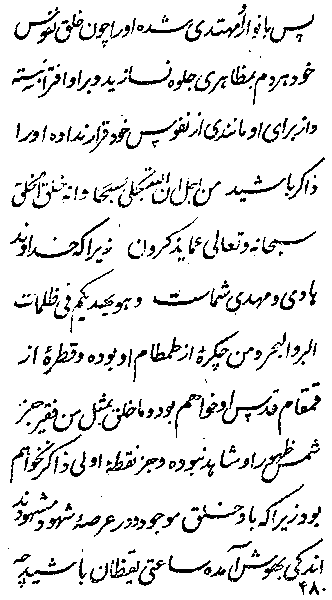 پس بانوار او مهتدی شده او را چون خلق نفوس
خود هر دم بمظاهری جلوه نسازید و بر او افترا نبسته
و از برای او مانندی از نفوس خود قرار نداده او را
ذاکر باشید من اجل ان الله تجلی سبحانه خلق الخلق
سبحانه و تعالی عما یذکرون زیرا که خداوند
هادی و مهدی شماست و هو یهدیکم فی ظلمات
البر و البحر و من چکرهٔ از طمطام او بوده و قطرهٔ از
قمقام قدس او خواهم بود و ما خلق بمثل من فقیر جز
شمس ظهور او شاهد نبوده و جز نقطهٔ اولی ذاکر نخواهم
بود زیرا که باو خلق موجود و در عرصهٔ شهود مشهودند
اندکی بهوش آمده ساعتی یقظان باشید چه
۴۸۰